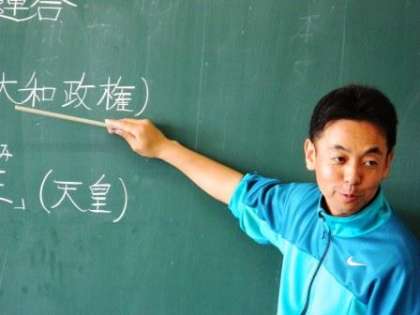 連合
大和政権)
み
王」(天皇)